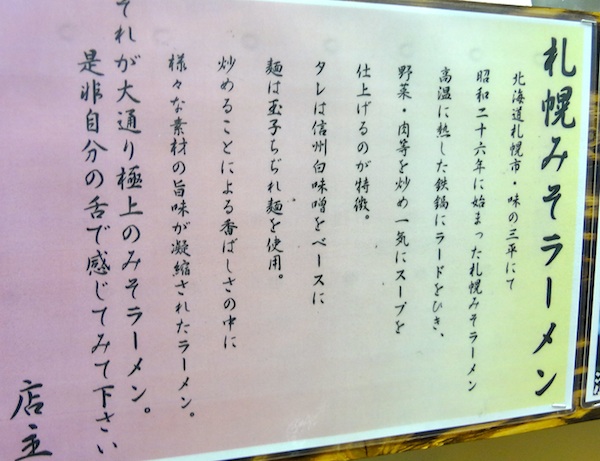 札幌みそラーメン
北海道札幌市・味の三平にて
昭和二十六年に始まった札幌みそラーメン
高温に熱した鉄鍋にラードをひき、
野菜・肉等を炒め一気にスープを
仕上げるのが特徴。
タレは信州白味噌をベースに
麺は玉子ちぢれ麺を使用。
炒めることによる香ばしさの中に
様々な素材の旨味が凝縮されたラーメン。
それが大通り極上のみそラーメン。
是非自分の舌で感じてみて下さい
店主